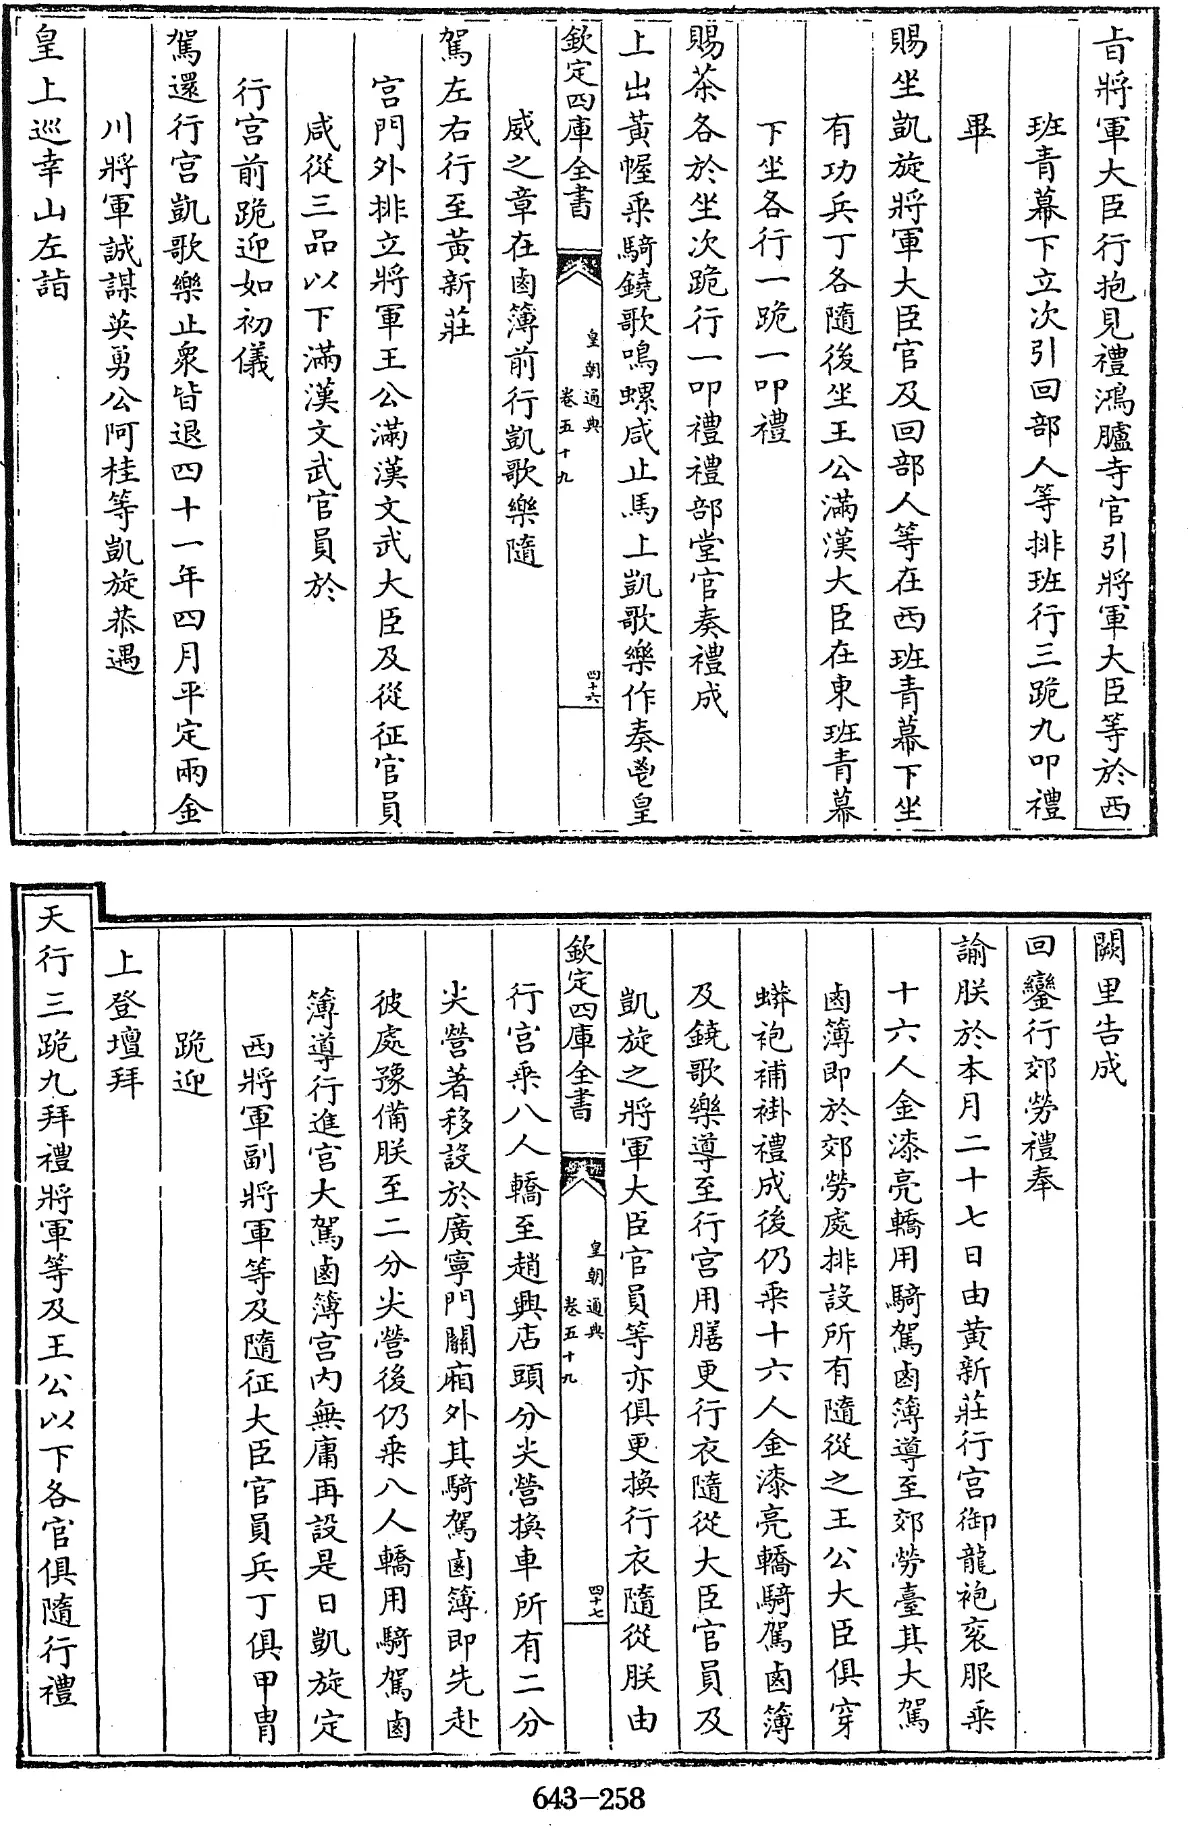 旨將軍大臣行抱見禮鴻臚寺官引將軍大臣等於西
班青幕下立次引回部人等排班行三跪九叩禮
畢
賜坐凱旋將軍大臣官及回部人等在西班青幕下坐
有功兵丁各隨後坐王公滿漢大臣在東班青幕
下坐各行一跪一叩禮
賜茶各於坐次跪行一叩禮禮部堂官奏禮成
上出黃幄乗騎鐃歌鳴螺咸止馬上凱歌樂作奏鬯皇
欽定四庫全書
皇朝通典
卷五十九
四十六
威之章在鹵簿前行凱歌樂隨
駕左右行至黃新莊
宮門外排立將軍王公滿漢文武大臣及從征官員
咸從三品以下滿漢文武官員於
行宮前跪迎如初儀
駕還行宮凱歌樂止衆皆退四十一年四月平定兩金
川將軍誠謀英勇公阿桂等凱旋恭遇
皇上巡幸山左詣
闕里告成
回鑾行郊勞禮奉
諭朕於本月二十七日由黃新莊行宮御龍袍衮服乗
十六人金漆亮轎用騎駕鹵簿導至郊勞臺其大駕
鹵簿即於郊勞處排設所有隨從之王公大臣俱穿
蟒袍補褂禮成後仍乗十六人金漆亮轎騎駕鹵簿
及鐃歌樂導至行宮用膳更行衣隨從大臣官員及
凱旋之將軍大臣官員等亦俱更換行衣隨從朕由
欽定四庫全書
皇朝通典
卷五十九
四十七
行宮乗八人轎至趙興店頭分尖營換車所有二分
尖營著移設於廣寧門關廂外其騎駕鹵簿即先赴
彼處豫備朕至二分尖營後仍乗八人轎用騎駕鹵
簿導行進宮大駕鹵簿宮內無庸再設是日凱旋定
西將軍副將軍等及隨征大臣官員兵丁俱甲胄
跪迎
上登壇拜
天行三跪九拜禮將軍等及王公以下各官俱隨行禮
643-258